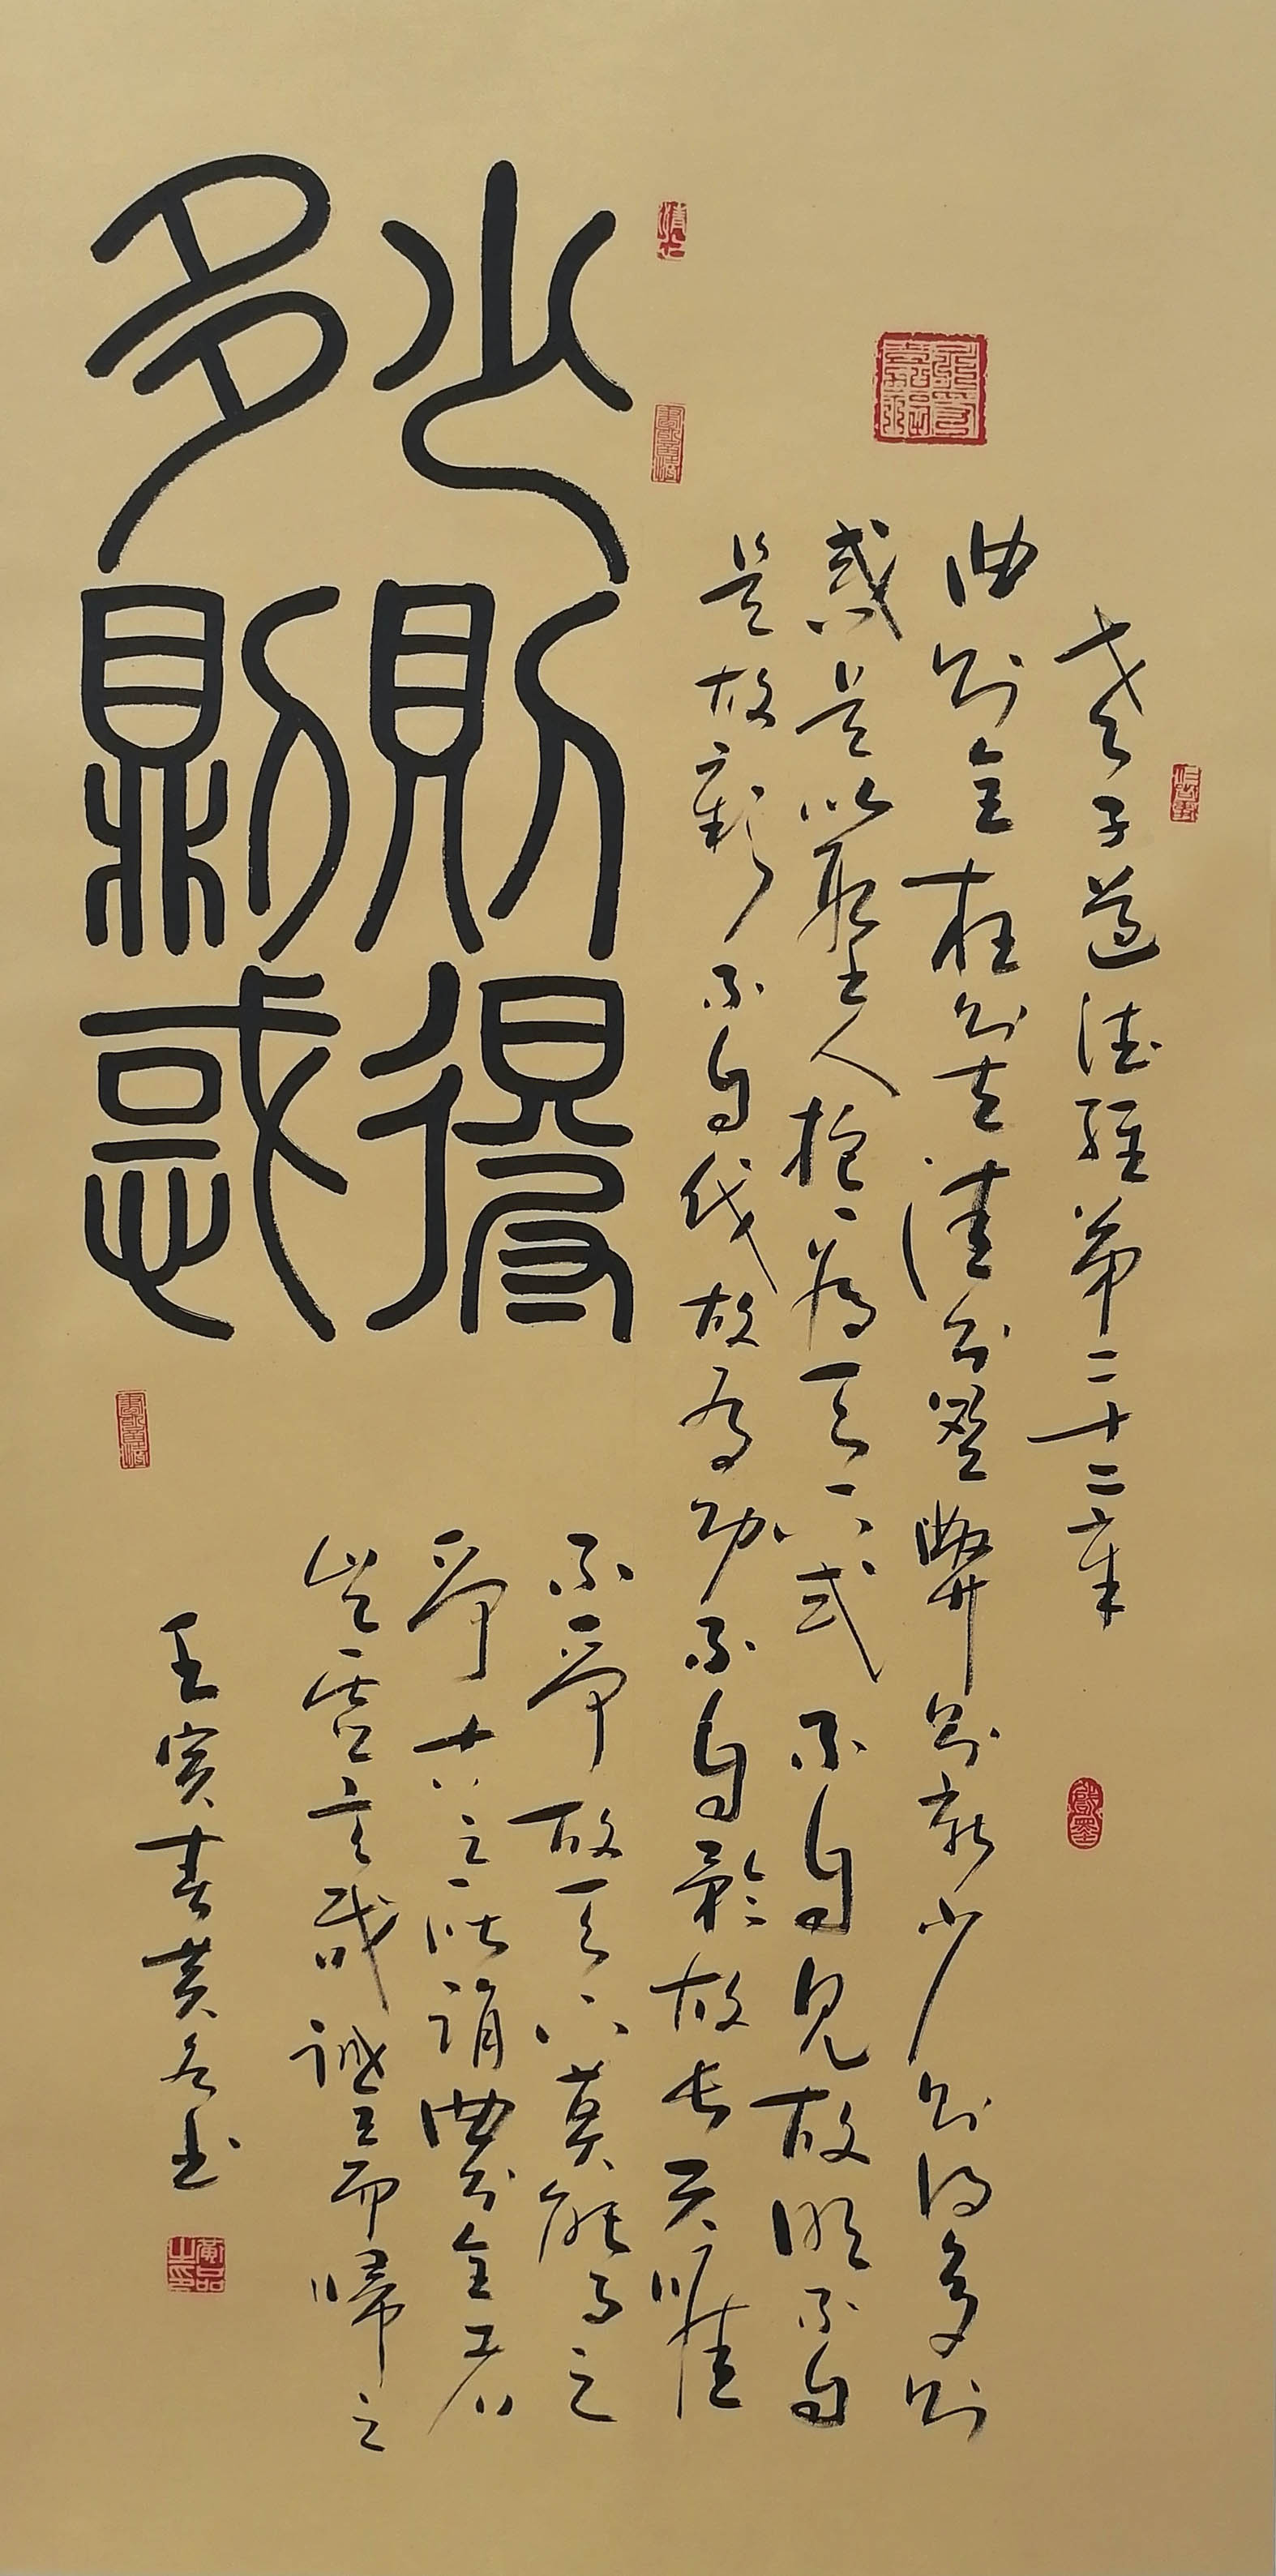 少則得
多則惑
老子道德經第二十二章
曲則全枉則直窪則盈弊則新少則得多則
惑是以聖人抱一為天下式不自見故明不自
是故彰不自伐故為功不自矜故長夫唯
不爭故天下莫能與之
爭古之所謂曲則全者
豈虛言哉誠全而歸之
壬寅春黃書
黃品之印